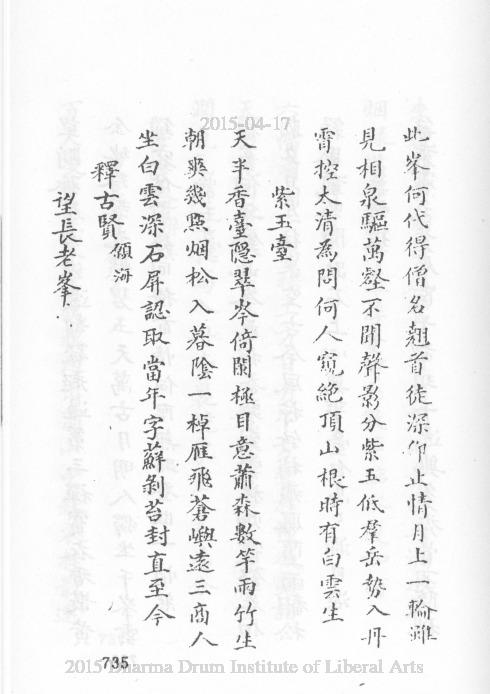 2015-04-17
此峯何代得僧名翹首徒深仰止情月上一輪難
見相泉驅萬壑不聞聲影分紫玉低羣岳勢入丹
霄控太清為問何人窺絕頂山根時有白雲生
紫玉臺
天半香臺隱翠岑倚闌極目意蕭森數竿雨竹生
朝爽幾點烟松入暮陰一棹雁飛蒼嶼遠三商人
坐白雲深石屏認取當年字蘚剝苔封直至今
釋古賢 頷海
望長老峯
735
2015 Dharma Drum Institute of Liberal Arts